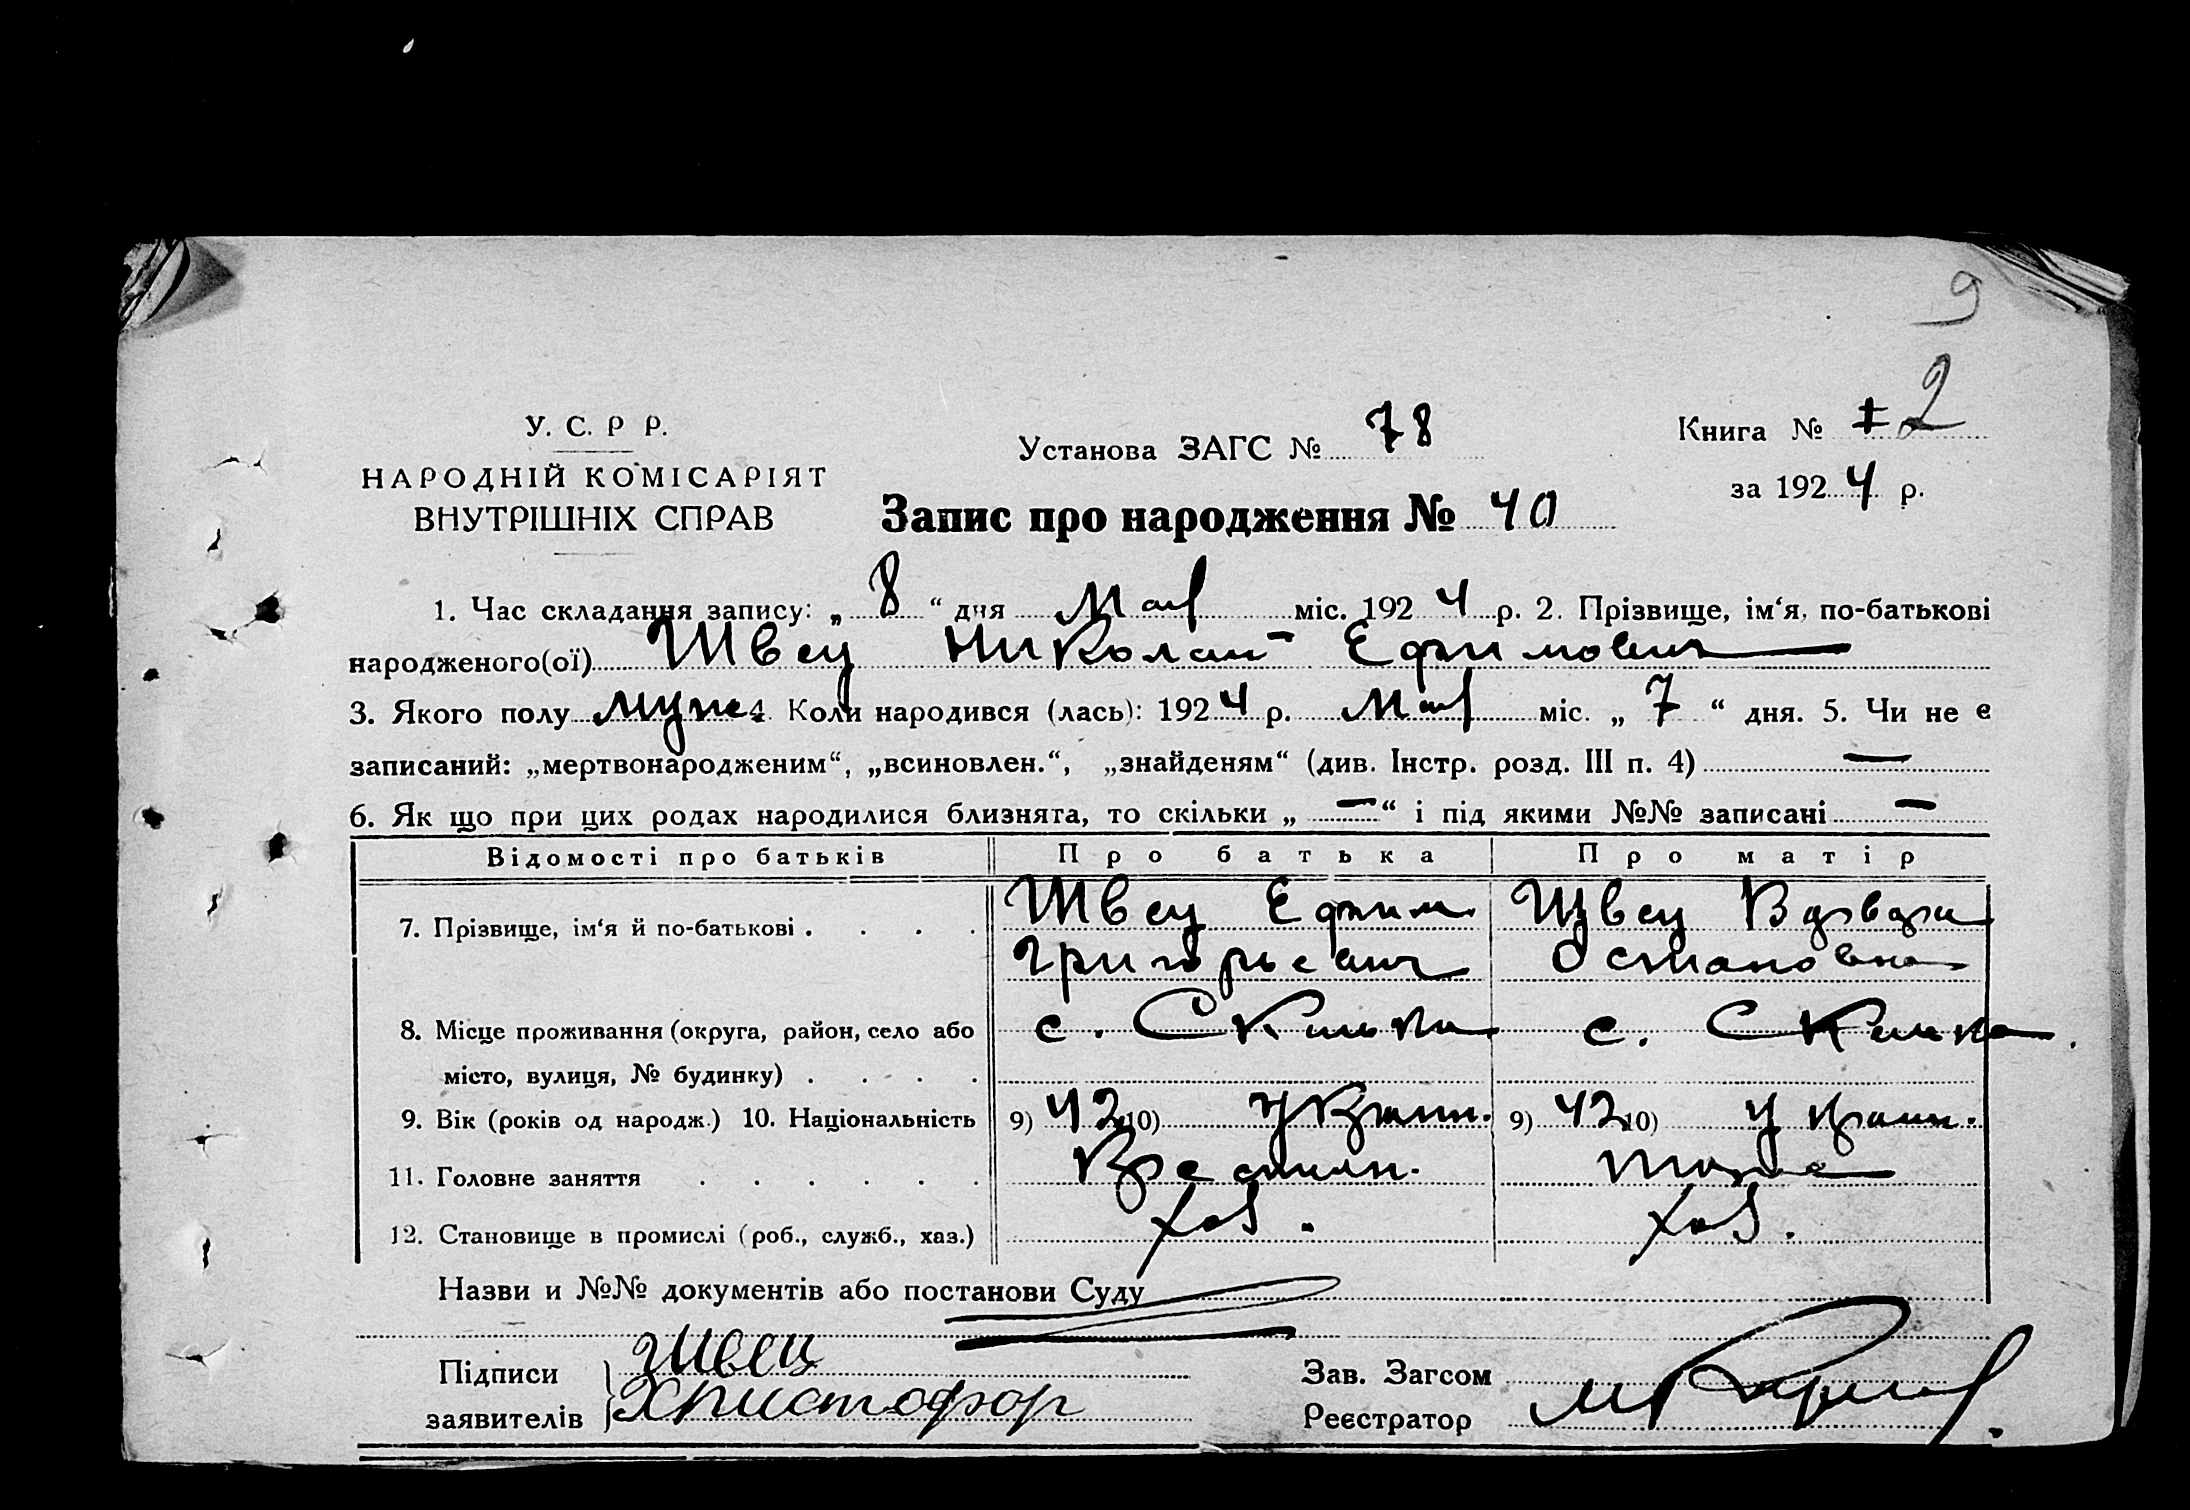 9
У. С. Р Р.
НАРОДНІЙ КОМІСАРІЯТ
ВНУТРІШНІХ СПРАВ
Установа ЗАГС № 78
Книга № 2
за 1924 р.
Запис про народження № 40
1. Час складання запису: „ 8 “ дня Мая міс. 1924 р. 2. Прізвище, ім‘я, по-батькові
народженого(ої) Швец Николай Ефимович
3. Якого полу муж. 4. Коли народився (лась): 1924 р. Мая міс. „ 7 “ дня. 5. Чи не є
записаний: „мертвонародженим“, „всиновлен.“, „знайденям“ (див. Інстр. розд. III п. 4) —
6. Як що при цих родах народилися близнята, то скільки „ — “ і під якими №№ записані —
Відомості про батьків Про батька Про матір
7. Прізвище, ім‘я й по-батькові . . . . Швец Ефим Швец Варвара
Григорьевич Остаповна
8. Місце проживання (округа, район, село або с. Скелька с. Скелька.
місто, вулиця, № будинку) . . . .
9. Вік (років од народж.) 10. Національність 9) 42 10) Украин. 9) 42 10) Украин.
11. Головне заняття . . . . . . Крестьян. тоже
12. Становище в промислі (роб., служб., хаз.) хаз. хаз.
Назви и №№ документів або постанови Суду
Підписи Швец Зав. Загсом
заявителів Христофор Реєстратор